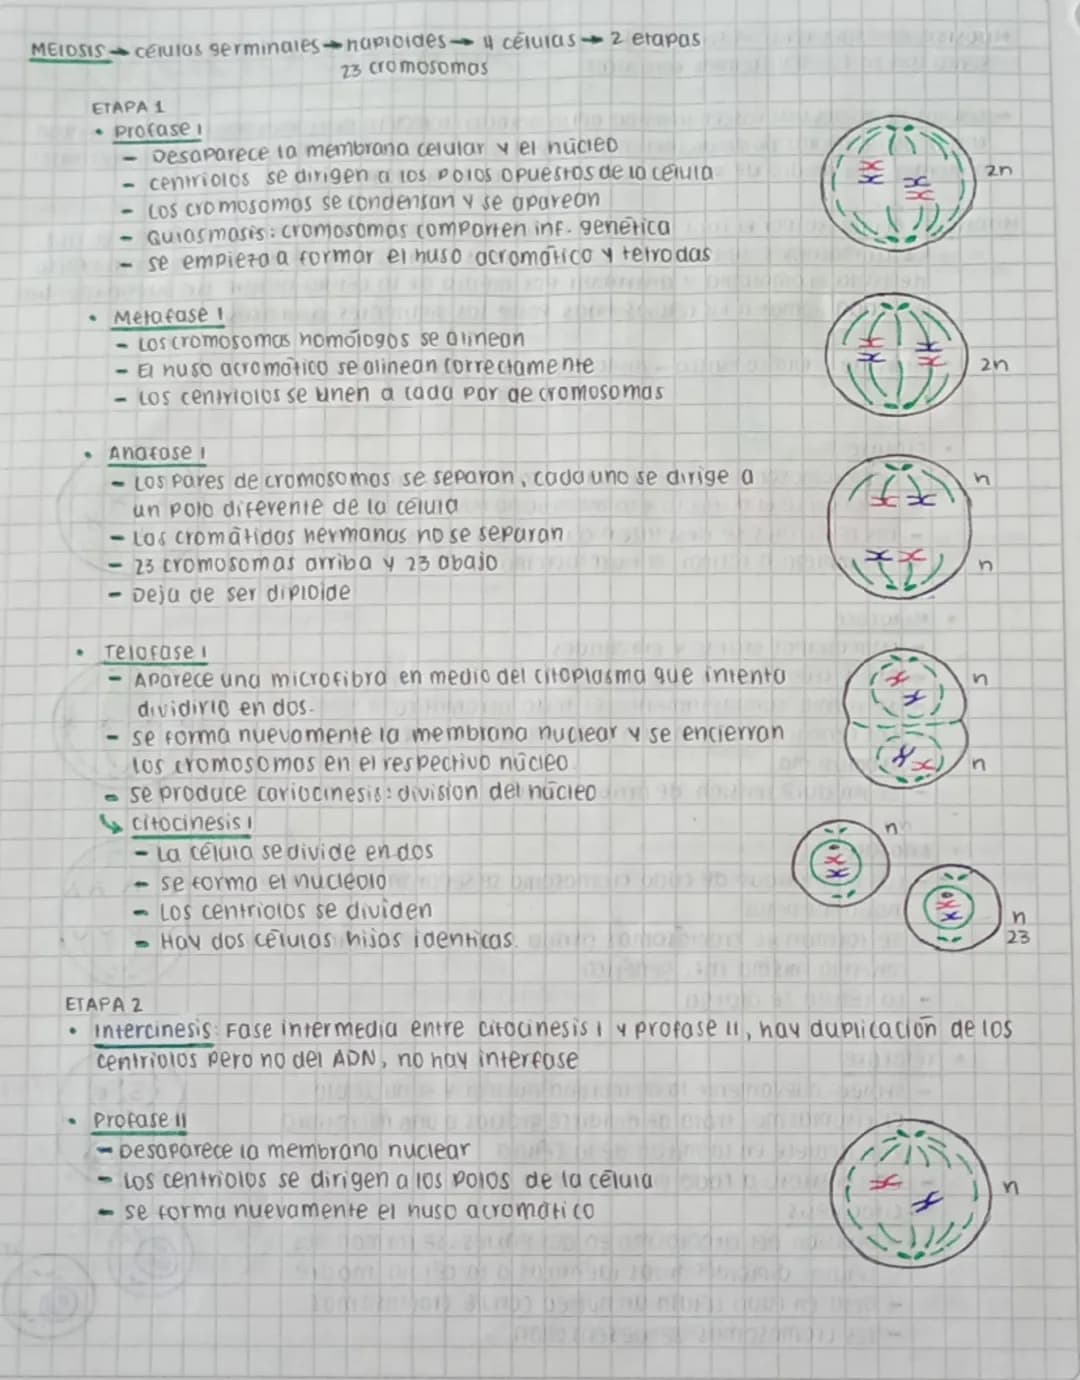 MEIOSIS → células germinales → haploides → 4 células → 2 etapas
23 cromosomas
ETAPA 1
• Profase I
- Desaparece la membrana celular y el núcleo
- centriolos se dirigen a los polos opuestos de la célula
- Los cromosomas se condensan y se aparean
- Quiasmasis: cromosomas comparten inf. genética
- se empieza a formar el huso acromático y tetrodas
2n
• Metafase I
- Los cromosomas homólogos se alinean
- El huso acromático se alinean correctamente
- Los centriolos se unen a cada par de cromosomas
2n
• Anafase I
- Los pares de cromosomas se separan, cada uno se dirige a
un polo diferente de la célula
- Las cromátidas hermanas no se separan
- 23 cromosomas arriba y 23 abajo
- Deja de ser diploide
n
n
• Telofase I
- Aparece una microfibra en medio del citoplasma que intenta
dividirlo en dos.
- se forma nuevamente la membrana nuclear y se encierran
los cromosomas en el respectivo núcleo.
- se produce cariocinesis: división del núcleo
n
n
↳ Citocinesis I
- La célula se divide en dos
- se forma el nucleolo
- Los centriolos se dividen
- Hay dos células hijas identicas.
n
n
23
ETAPA 2
• Intercinesis: Fase intermedia entre citocinesis I y profase II, hay duplicación de los
centriolos pero no del ADN, no hay interfase
• Profase II
- Desaparece la membrana nuclear
- Los centriolos se dirigen a los polos de la célula
- se forma nuevamente el huso acromático
n